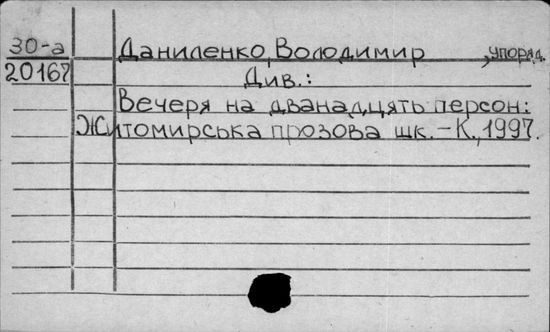 30-а Даниленко, Володимир, упоряд.
20167 Див.:
Вечеря на дванадцять персон:
Житомирська прозова шк. - К., 1997.